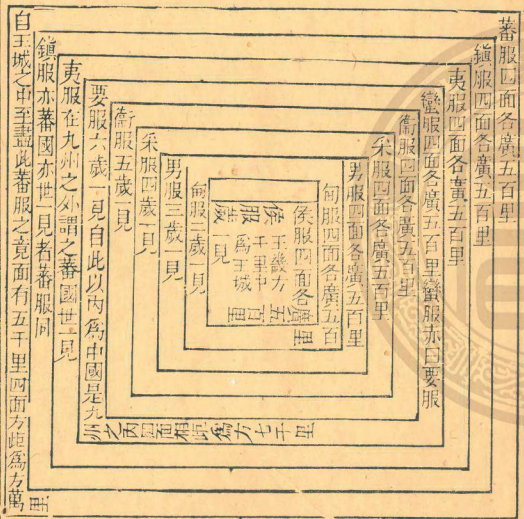 蕃服四面各廣五百里
鎮服四面各廣五百里
夷服四面各廣五百里
蠻服四面各廣五百里蠻服亦曰要服
衞服四面各廣五百里
采服四面各廣五百里
男服四面各廣五百里
甸服四面各廣五百里
侯服四面各廣五百里
王畿方
千里中
爲王城
侯服
歲一見
甸服二歲一見
男服三歲一見
采服四歲一見
衞服五歲一見
要服六歲一見自此以内爲中國是九
州之内四面相距爲方七千里
夷服在九州之外謂之蕃國世一見
鎮服亦蕃國亦世一見者蕃服同
自王城之中至盡此蕃服之竟面有五千里四面方距爲方萬里